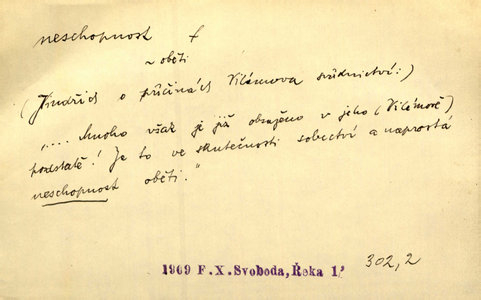 neschopnost f
~ oběti
(Jindřich o příčinách Vilémova svůdnictví:)
„.... Mnoho však je již obsaženo v jeho (Vilémově)
podstatě! Je to ve skutečnosti sobectví a naprostá
neschopnost oběti."
1909 F. X. Svoboda, Řeka 1,
302,2